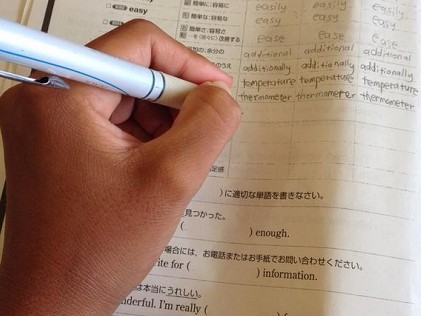 easy
簡単に; 容易に easily easily easily
簡単な; 容易な easy easy easy
簡単さ; 容易さ
を(徐々に)改善する ease ease ease
余分の additional additional additional
additionally additionally additionally
temperature temperature temperature
thermometer thermometer thermometer
足感
)に適切な単語を書きなさい。
見つかった。
( ) enough.
場合には、お電話またはお手紙でお問い合わせください。
rite for ( ) information.
は本当にうれしい。
nderful. I'm really (